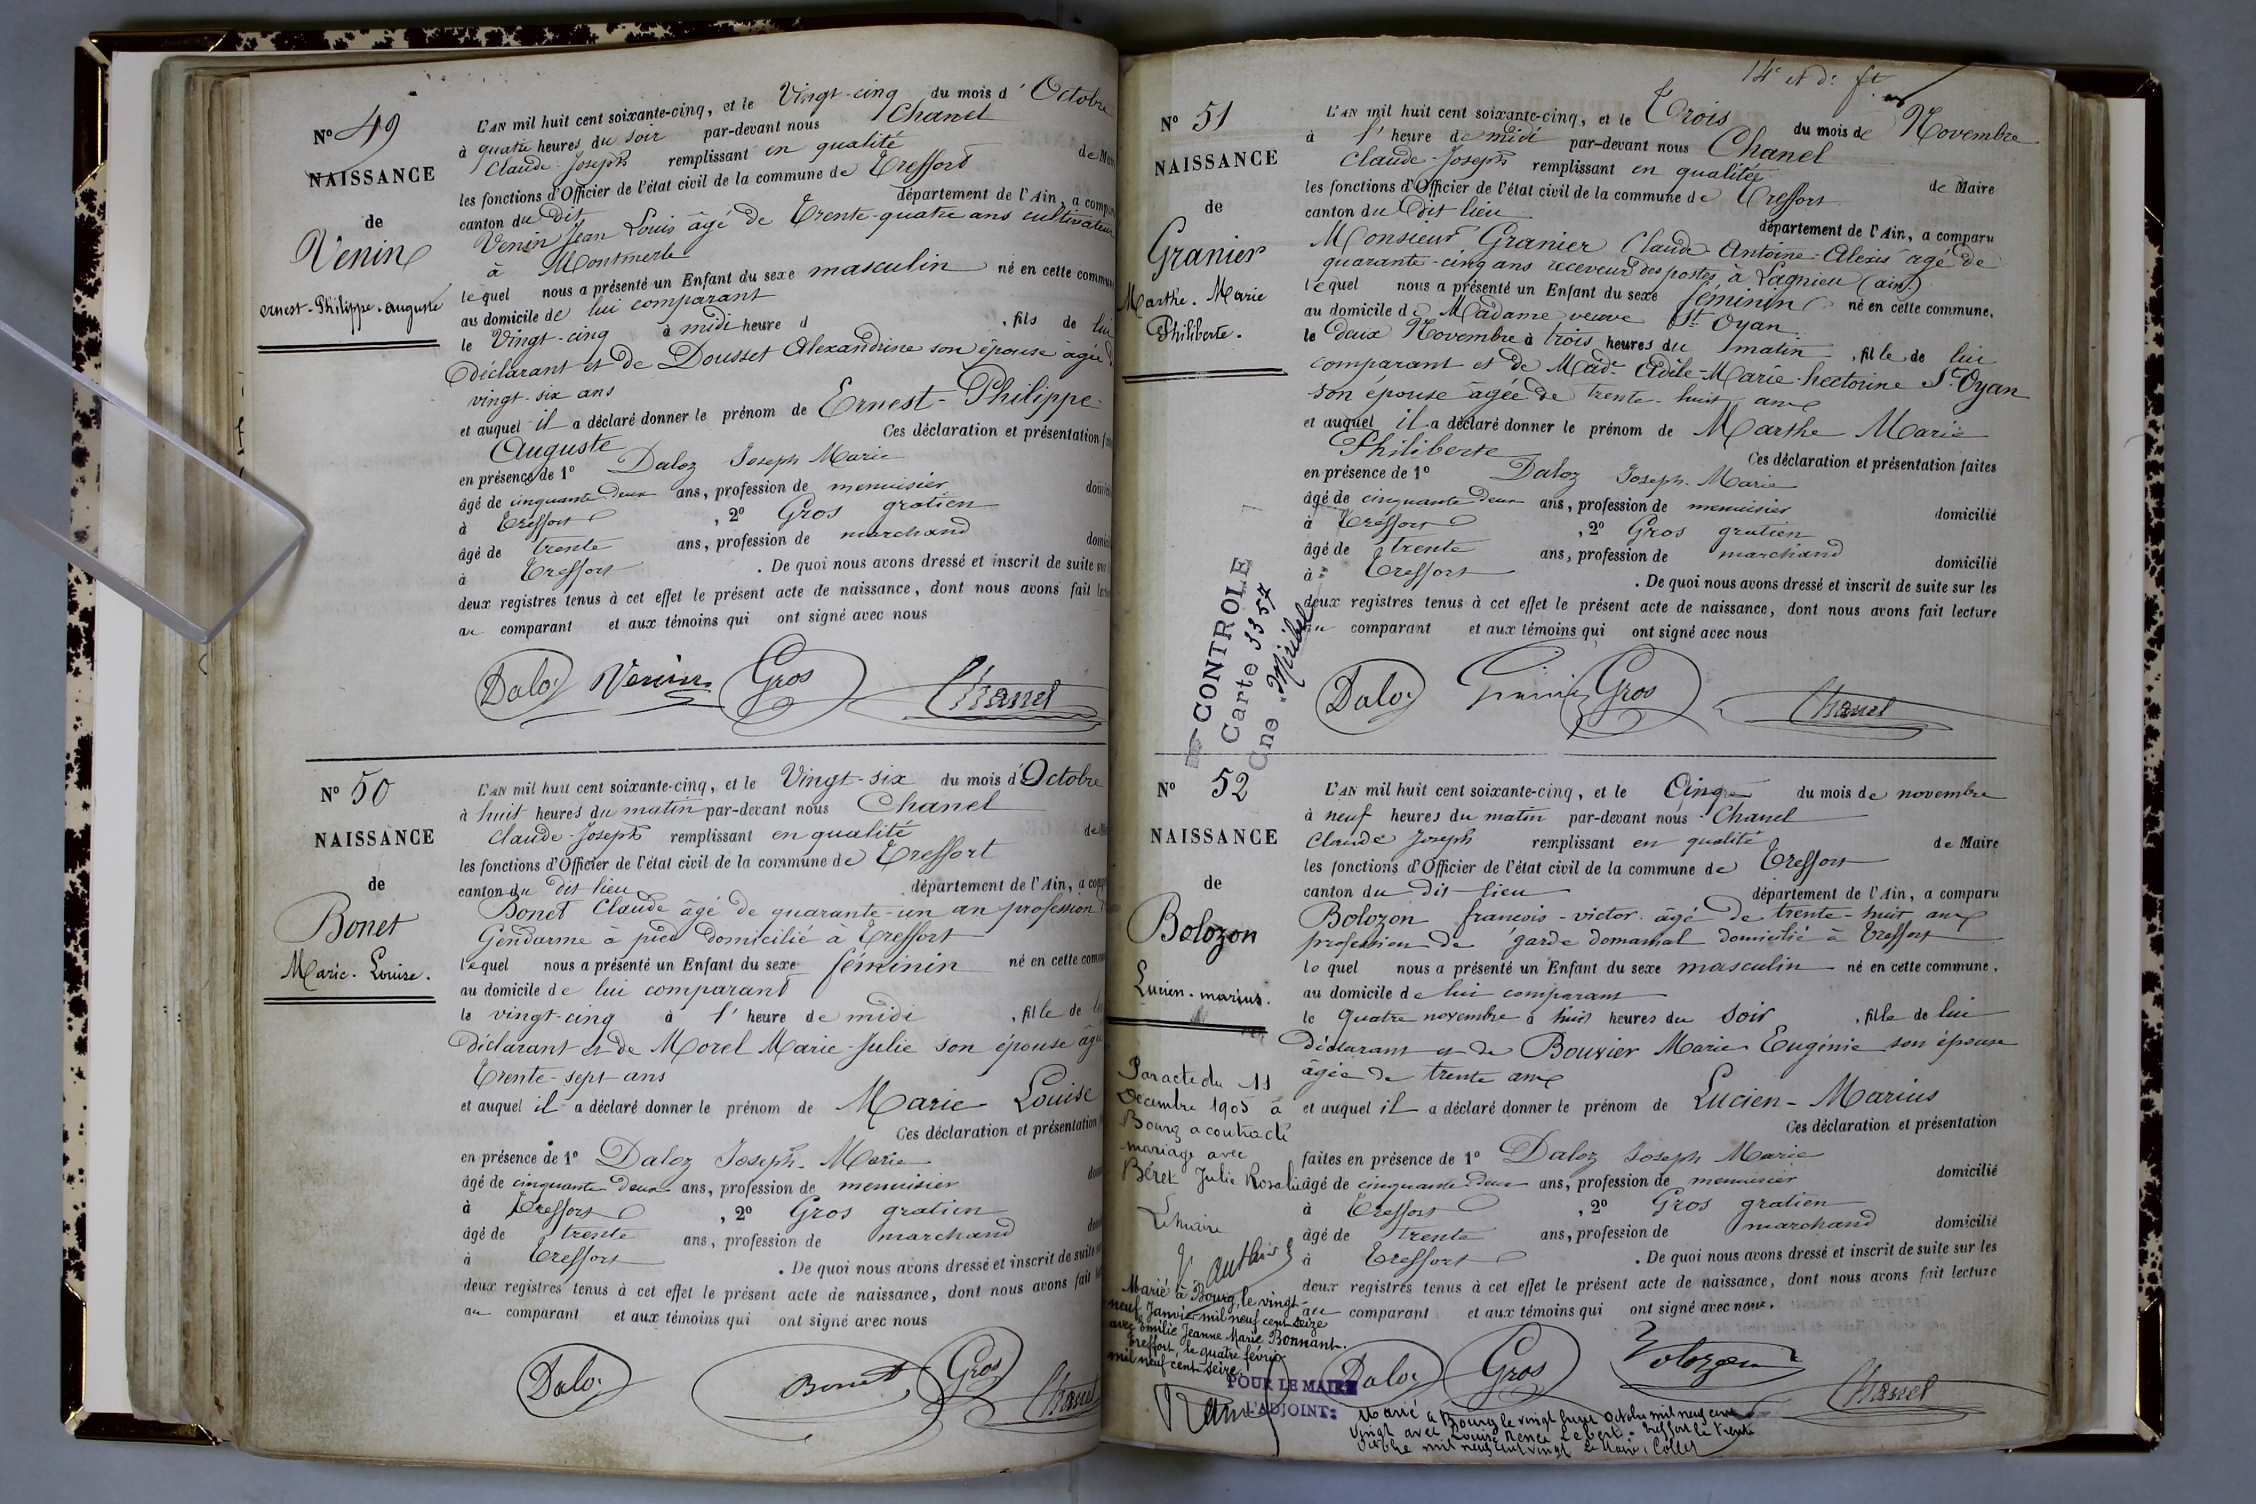 Nº 49
NAISSANCE
de
Venin
ernest-Philippe-auguste
L'AN mil huit cent soixante-cinq, et le Vingt-cinq du mois d'Octobre
à quatre heures du soir par-devant nous Chanel
Claude-Joseph remplissant en qualité de
les fonctions d'Officier de l'état civil de la commune de Treffort
canton du dit département de l'Ain, a
Venin Jean Louis âgé de Trente-quatre ans cultivateur
à Montmerle
lequel nous a présenté un Enfant du sexe masculin né en cette commune
au domicile de lui comparant
le Vingt-cinq à midi heure d , fils de lui
déclarant et de Dousset Alexandrine son épouse âgée
vingt-six ans
et auquel il a déclaré donner le prénom de Ernest-Philippe-
Auguste Ces déclaration et présentation
en présence de 1º Daloz Joseph Marie
âgé de cinquante deux ans, profession de menuisier
à Treffort , 2º Gros gratien
âgé de trente ans, profession de marchand
à Treffort . De quoi nous avons dressé et inscrit de suite
deux registres tenus à cet effet le présent acte de naissance, dont nous avons fait
au comparant et aux témoins qui ont signé avec nous
Daloz Venin Gros Chanel
Nº 50
NAISSANCE
de
Bonet
Marie-Louise.
L'AN mil huit cent soixante-cinq, et le Vingt-six du mois d'Octobre
à huit heures du matin par-devant nous Chanel
Claude-Joseph remplissant en qualité
les fonctions d'Officier de l'état civil de la commune de Treffort
canton du dit lieu département de l'Ain, a
Bonet Claude âgé de quarante-un an profession
Gendarme à pied domicilié à Treffort
lequel nous a présenté un Enfant du sexe féminin né en cette
au domicile de lui comparant
le vingt-cinq à l'heure de midi , fille de
déclarant et de Morel Marie-Julie son épouse
Trente-sept ans
et auquel il a déclaré donner le prénom de Marie Louise
Ces déclaration et présentation
en présence de 1º Daloz Joseph-Marie
âgé de cinquante deux ans, profession de menuisier
à Treffort , 2º Gros gratien
âgé de trente ans, profession de marchand
à Treffort . De quoi nous avons dressé et inscrit de suite
deux registres tenus à cet effet le présent acte de naissance, dont nous avons fait
au comparant et aux témoins qui ont signé avec nous
Daloz Bonet Gros Chanel
14e et d:
Nº 51
NAISSANCE
de
Granier
Marthe-Marie
Philiberte.
L'AN mil huit cent soixante-cinq, et le Trois du mois de Novembre
à l'heure de midi par-devant nous Chanel
Claude-Joseph remplissant en qualité de Maire
les fonctions d'Officier de l'état civil de la commune de Treffort
canton du dit lieu département de l'Ain, a comparu
Monsieur Granier Claude-Antoine-Alexis âgé de
quarante-cinq ans receveur des postes à Lagnieu (ain)
lequel nous a présenté un Enfant du sexe féminin né en cette commune.
au domicile d Madame veuve St Oyan
le deux Novembre à trois heures du matin , fille de lui
comparant et de Made Adèle-Marie-hectorine St Oyan
son épouse âgée de trente-huit ans
et auquel il a déclaré donner le prénom de Marthe Marie
Philiberte Ces déclaration et présentation faites
en présence de 1º Daloz Joseph-Marie
âgé de cinquante deux ans, profession de menuisier domicilié
à Treffort , 2º Gros gratien
âgé de trente ans, profession de marchand domicilié
à Treffort . De quoi nous avons dressé et inscrit de suite sur les
deux registres tenus à cet effet le présent acte de naissance, dont nous avons fait lecture
au comparant et aux témoins qui ont signé avec nous
CONTROLE
Carte 3357
Cne Miribel
Daloz Granier Gros Chanel
Nº 52
NAISSANCE
de
Bolozon
Lucien-marius.
L'AN mil huit cent soixante-cinq, et le Cinq du mois de novembre
à neuf heures du matin par-devant nous Chanel
Claude Joseph remplissant en qualité de Maire
les fonctions d'Officier de l'état civil de la commune de Treffort
canton du dit lieu département de l'Ain, a comparu
Bolozon francois-victor âgé de trente-huit ans
profession de garde domanial domicilié à Treffort
lequel nous a présenté un Enfant du sexe masculin né en cette commune.
au domicile de lui comparant
le Quatre novembre à huit heures du soir , fille de lui
Déclarant et de Bouvier Marie Eugénie son épouse
âgée de trente ans
et auquel il a déclaré donner le prénom de Lucien-Marius
Ces déclaration et présentation
faites en présence de 1º Daloz Joseph Marie
âgé de cinquante deux ans, profession de menuisier domicilié
à Treffort , 2º Gros gratien
âgé de trente ans, profession de marchand domicilié
à Treffort . De quoi nous avons dressé et inscrit de suite sur les
deux registres tenus à cet effet le présent acte de naissance, dont nous avons fait lecture
au comparant et aux témoins qui ont signé avec nous.
Par acte du 11
Decembre 1905 à
Bourg a contracté
mariage avec
Béret Julie Rosalie
Le maire
Marié à Bourg, le vingt-
neuf Janvier mil neuf cent seize
avec Emilie Jeanne Marie Bonnant.
Treffort, le quatre février
mil neuf cent seize.
POUR LE MAIRE
L'ADJOINT:
Daloz Gros Bolozon Chanel
Marié à Bourg le vingt Octobre mil neuf cent
vingt avec Louise Treffort le trente
Octobre mil neuf cent vingt Le Maire